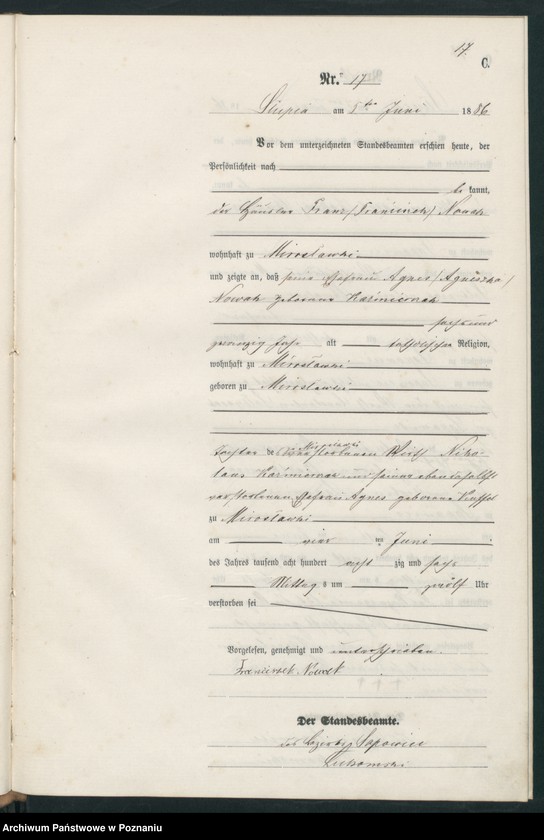 17.
C.
Nr. 17
Słupia am 5ten Juni 1886
Vor dem unterzeichneten Standesbeamten erschien heute, der
Persönlichkeit nach
be kannt,
der Häusler Franz /Franciszek/ Nowak
wohnhaft zu Mirosławki
und zeigte an, daß seine Ehefrau Agnes /Agnieszka/
Nowak geborene Kaźmierczak
sechs und
zwanzig Jahr alt katholischer Religion,
wohnhaft zu Mirosławki
geboren zu Mirosławki
Mirosławki
Tochter des zu verstorbenen Wirth Niko-
laus Kaźmierczak und seiner ebendaselbst
verstorbenen Ehefrau Agnes geborene
zu Mirosławki
am vier ten Juni
des Jahres tausend acht hundert acht zig und sechs
Mittag s um zwölf Uhr
verstorben sei
Vorgelesen, genehmigt und unterschrieben.
Franciszek Nowak
Der Standesbeamte.
Sapowice